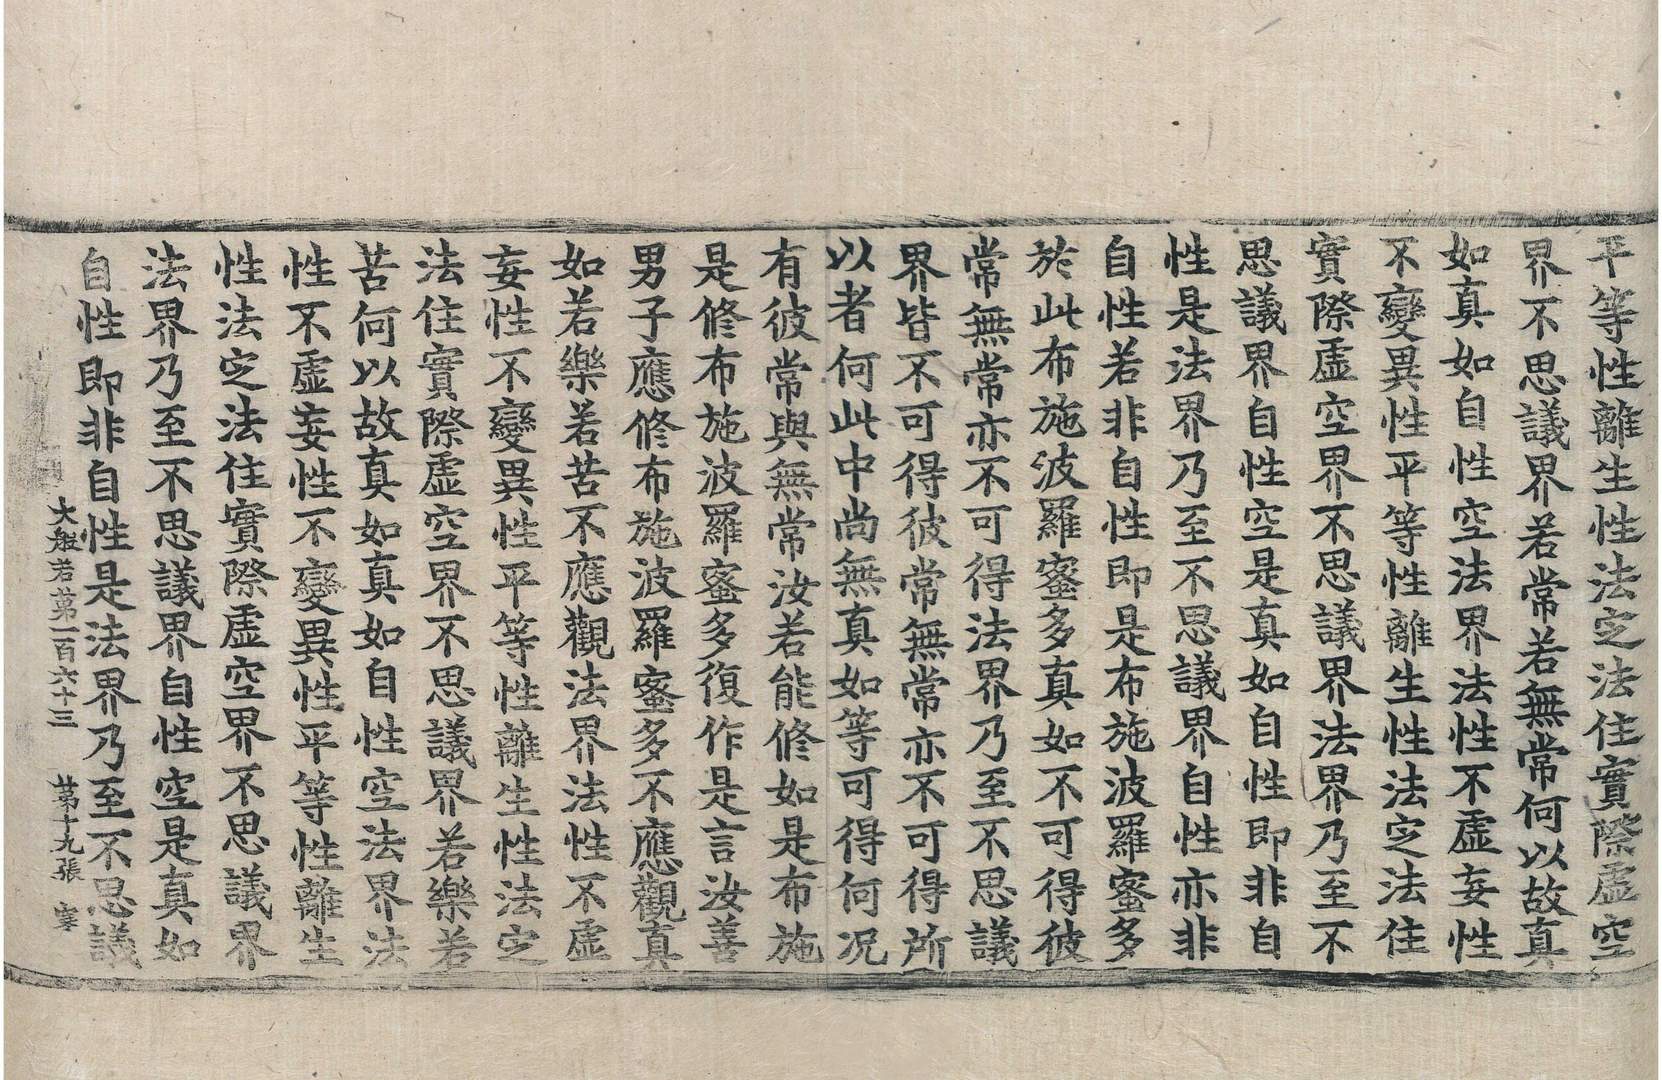 平等性離生性法定法住實際虛空
界不思議界若常若無常何以故真
如真如自性空法界法性不虛妄性
不變異性平等性離生性法定法住
實際虛空界不思議界法界乃至不
思議界自性空是真如自性即非自
性是法界乃至不思議界自性亦非
自性若非自性即是布施波羅蜜多
於此布施波羅蜜多真如不可得彼
常無常亦不可得法界乃至不思議
界皆不可得彼常無常亦不可得所
以者何此中尚無真如等可得何况
有彼常與無常汝若能修如是布施
是修布施波羅蜜多復作是言汝善
男子應修布施波羅蜜多不應觀真
如若樂若苦不應觀法界法性不虛
妄性不變異性平等性離生性法定
法住實際虛空界不思議界若樂若
苦何以故真如真如自性空法界法
性不虛妄性不變異性平等性離生
性法定法住實際虛空界不思議界
法界乃至不思議界自性空是真如
自性即非自性是法界乃至不思議
大般若第一百六十三 第十九張 寒